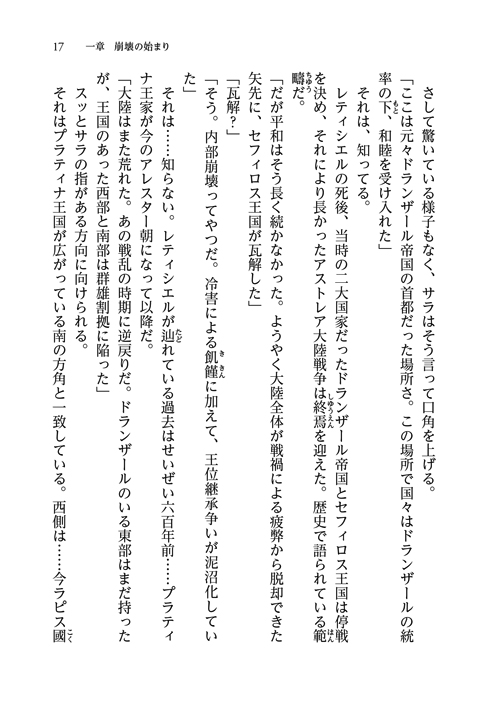 17　一章　崩壊の始まり
　さして驚いている様子もなく、サラはそう言って口角を上げる。
「ここは元々ドランザール帝国の首都だった場所さ。この場所で国々はドランザールの統
率の下、和睦を受け入れた」
　それは、知ってる。
　レティシエルの死後、当時の二大国家だったドランザール帝国とセフィロス王国は停戦
を決め、それにより長かったアストレア大陸戦争は終焉を迎えた。歴史で語られている範
疇だ。
「だが平和はそう長く続かなかった。ようやく大陸全体が戦禍による疲弊から脱却できた
矢先に、セフィロス王国が瓦解した」
「瓦解？」
「そう。内部崩壊ってやつだ。冷害による飢饉に加えて、王位継承争いが泥沼化してい
た」
　それは……知らない。レティシエルが辿れている過去はせいぜい六百年前……プラティ
ナ王家が今のアレスター朝になって以降だ。
「大陸はまた荒れた。あの戦乱の時期に逆戻りだ。ドランザールのいる東部はまだ持った
が、王国のあった西部と南部は群雄割拠に陥った」
　スッとサラの指がある方向に向けられる。
　それはプラティナ王国が広がっている南の方角と一致している。西側は……今ラピス國